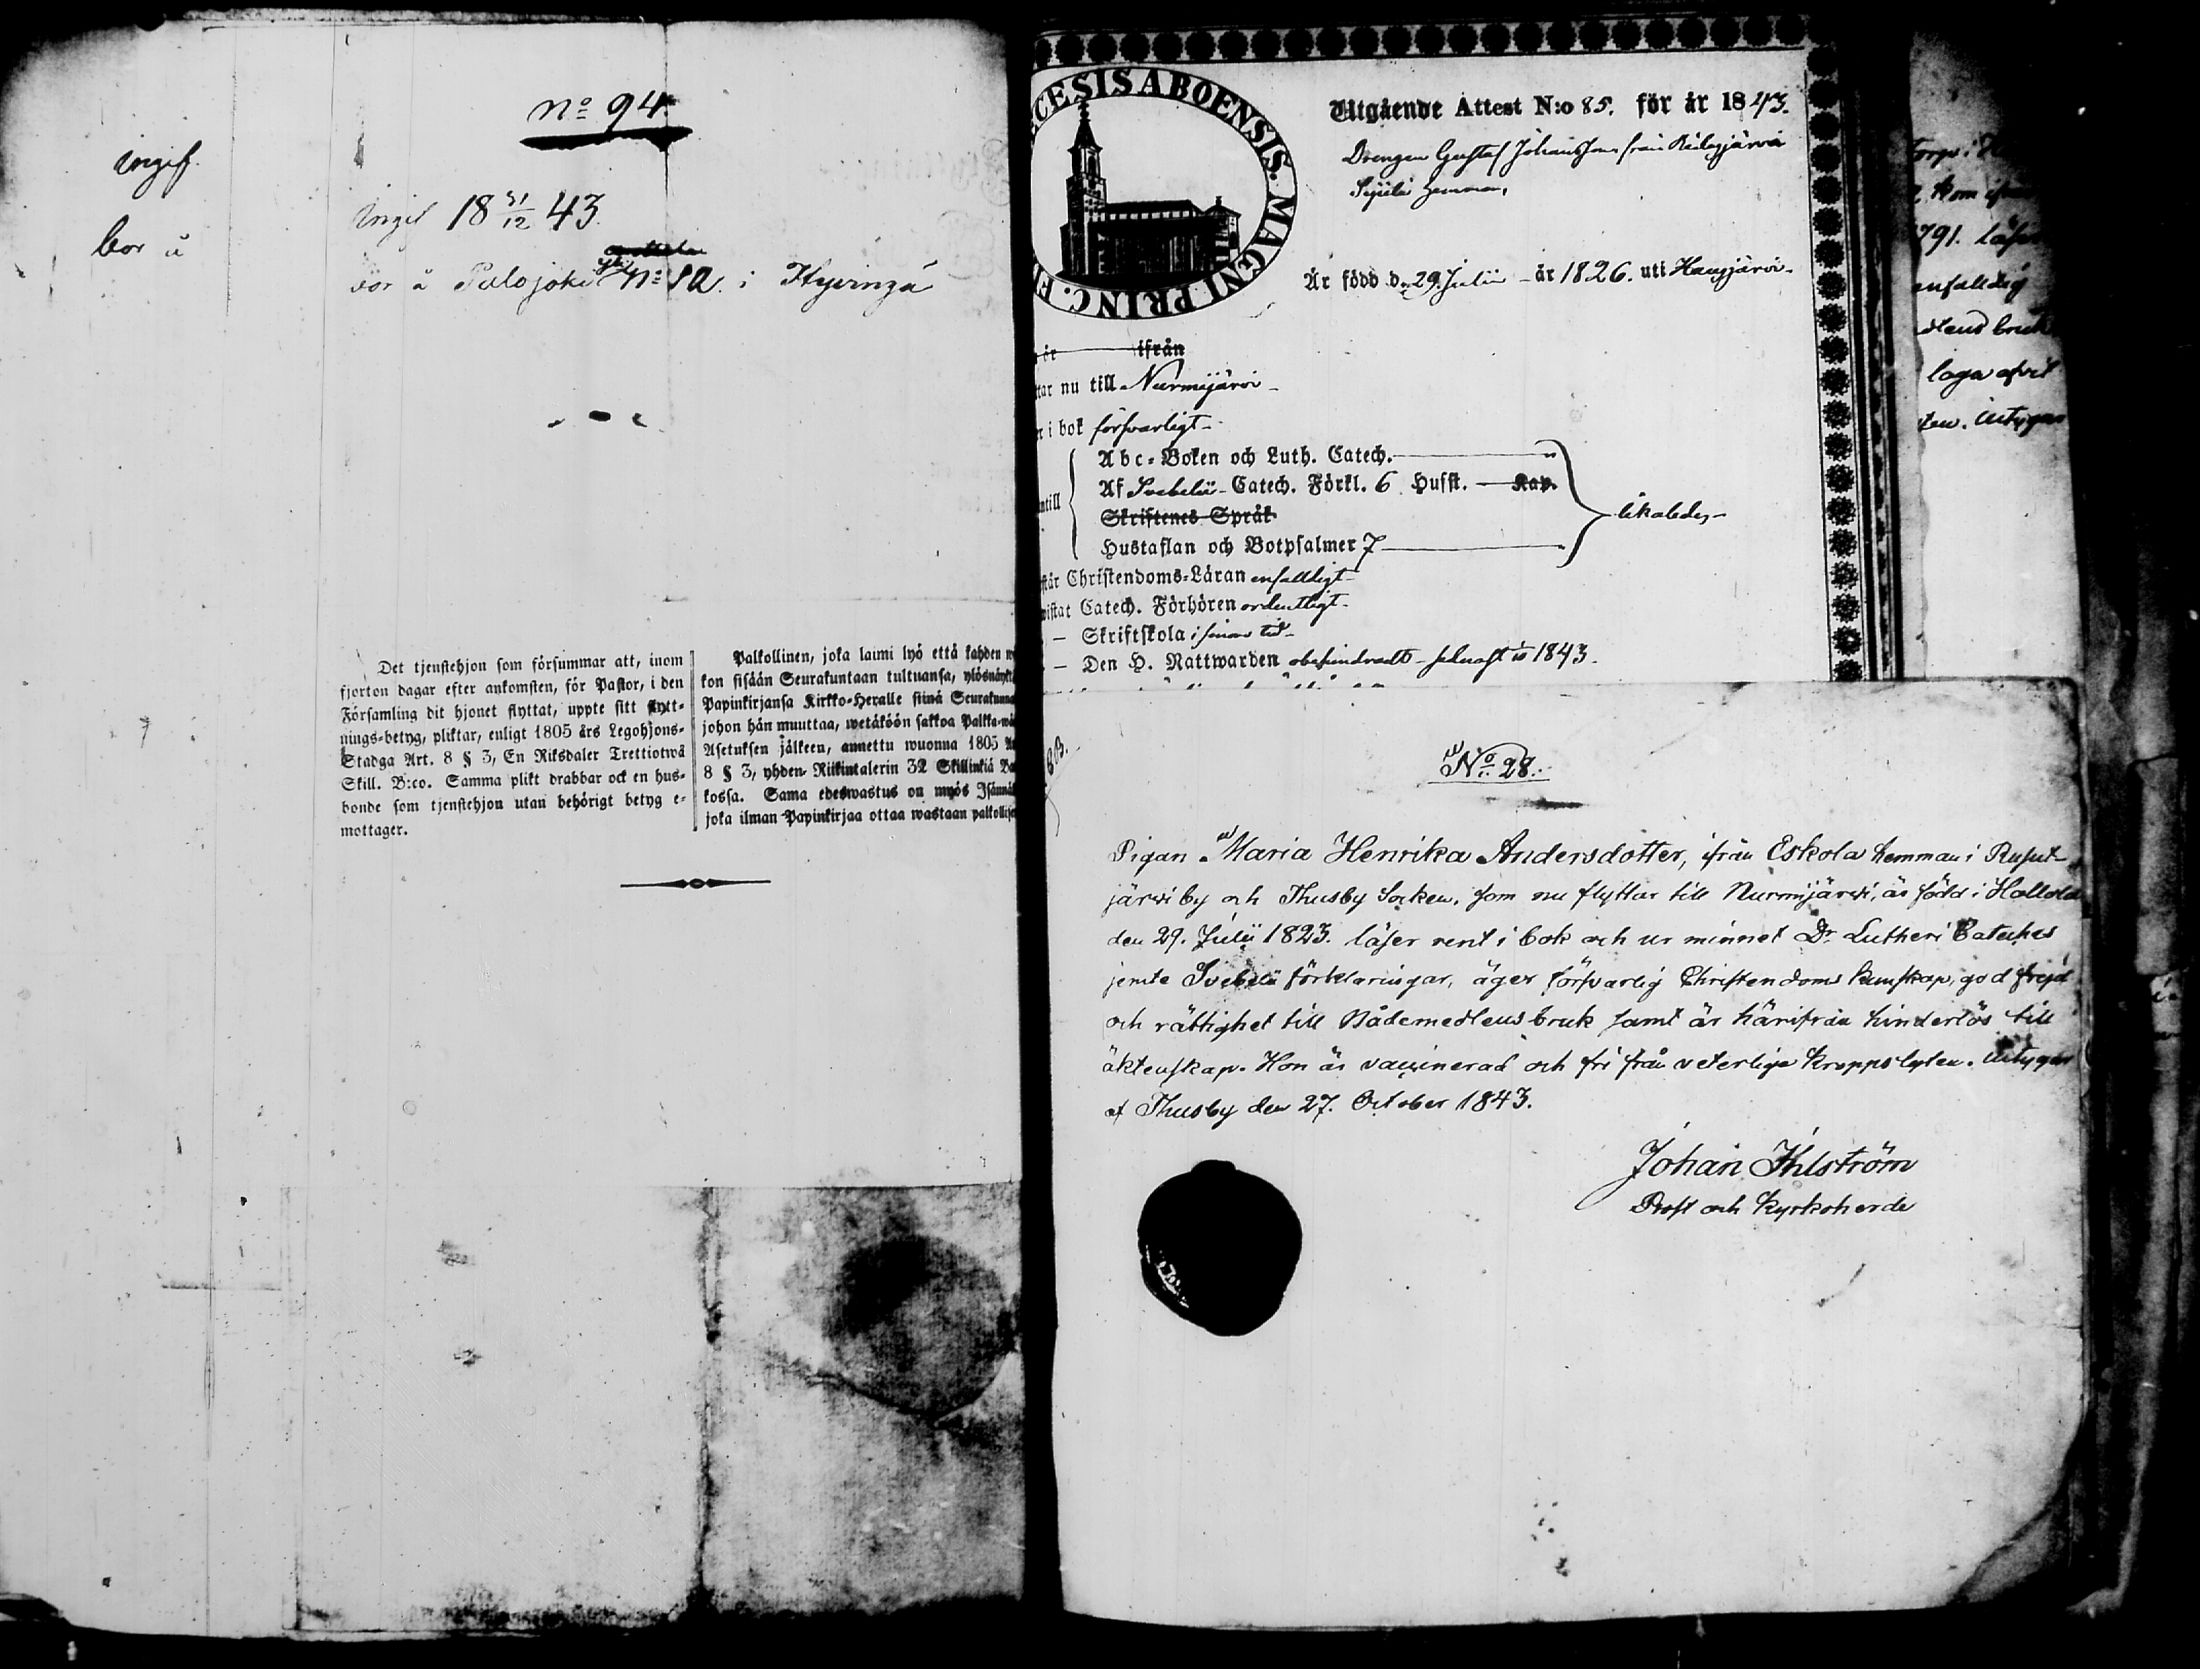 ingif.
bor å
No 94.
Ingif 18 31/12 43.
bor å Palojoki No 10. i Hyvinge
Det tjenstehjon som försummar att, inom
fjorton dagar efter ankomsten, för Pastor, i den
Församling dit hjonet flyttat, uppte sitt flytt-
nings-betyg, pliktar, enligt 1805 års Legohjons-
Stadga Art. 8 § 3, En Riksdaler Trettiotwå
Skill. B:co. Samma plikt drabbar ock en hus-
bonde som tjenstehjon utan behörigt betyg e-
mottager.
Palkollinen, joka laimi lyö että kahden
kon sisään Seurakuntaan tultuansa, ylösnäyt
Papinkirjansa Kirkko-Herralle siinä Seurakunna
johon hän muuttaa, wetäköön sakkoa Palkka-wä
Asetuksen jälkeen, annettu wuonna 1805
8 § 3, yhden Riikintalerin 32 Skillinkiä Ba
kossa. Sama edeswastus on myös Isännäl
joka ilman Papinkirjaa ottaa wastaan palkollise
CESIS ABOENSIS. MAGNI PRINC. F
Utgående Attest N:o 85. för år 1843.
Drengen Gustaf Johansson från
hemman,
Är född d. 29. Julii - år 1826. uti Hausjärvi.
år ifrån
ttar nu till Nurmijärvi -
r i bok försvarligt -
ntill
Abc-Boken och Luth. Catech.
Af Svebelii Catech. Förkl. 6 Husst. Kap.
Skriftenes Språk
Hustaflan och Botpsalmer 7
likaledes -
står Christendoms-Läran enfaldigt
wistat Catech. Förhören ordentligt.
- Skriftskola i sinom tid -
- Den H. Nattwarden obehindradt - senast 1843.
No 28.
Pigan Maria Henrika Andersdotter, ifrån Eskola hemman i Rusut-
järwi by och Thusby Socken, som nu flyttar till Nurmijärwi, är född i Hollola
den 29. Julii 1823. läser rent i bok och ur minnet Dr Lutheri Cateches
jemte Svebelii förklaringar, äger försvarlig Christendoms kunskap, god frejd
och rättighet till Nådemedlens bruk samt är härifrån hinderlös till
äktenskap. Hon är vaccinerad och fri från veterliga kroppslyten. Intygar
af Thusby den 27. October 1843.
Johan Ihlström
Prost och Kyrkoherde
Torp i
kom ifrån
1791. läser
enfaldig
dlens bruk
laga
ten. Intygas